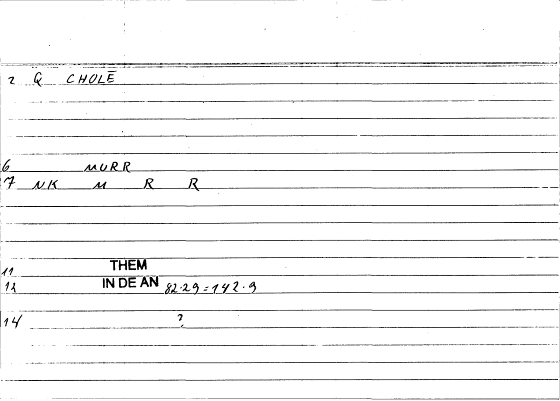 2 Q CHOLE
6 MURR
7 NK M R R
11 THEM
12 IN DE AN 82.29=142.9
14 ?